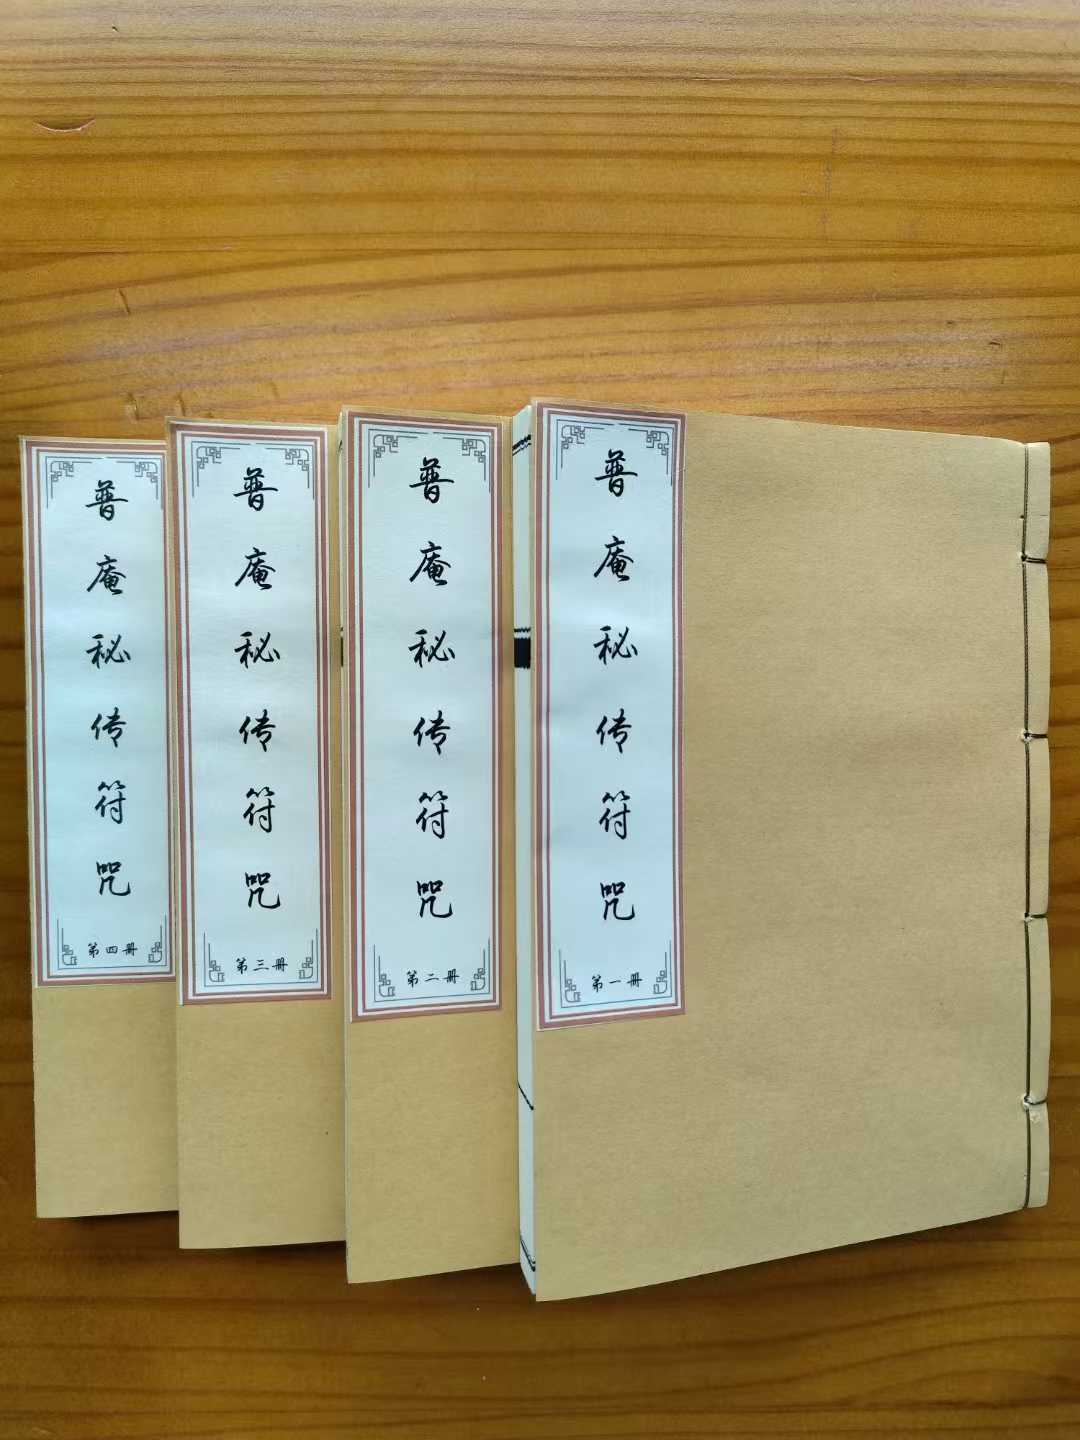 普庵秘传符咒
第一册
普庵秘传符咒
第二册
普庵秘传符咒
第三册
普庵秘传符咒
第四册